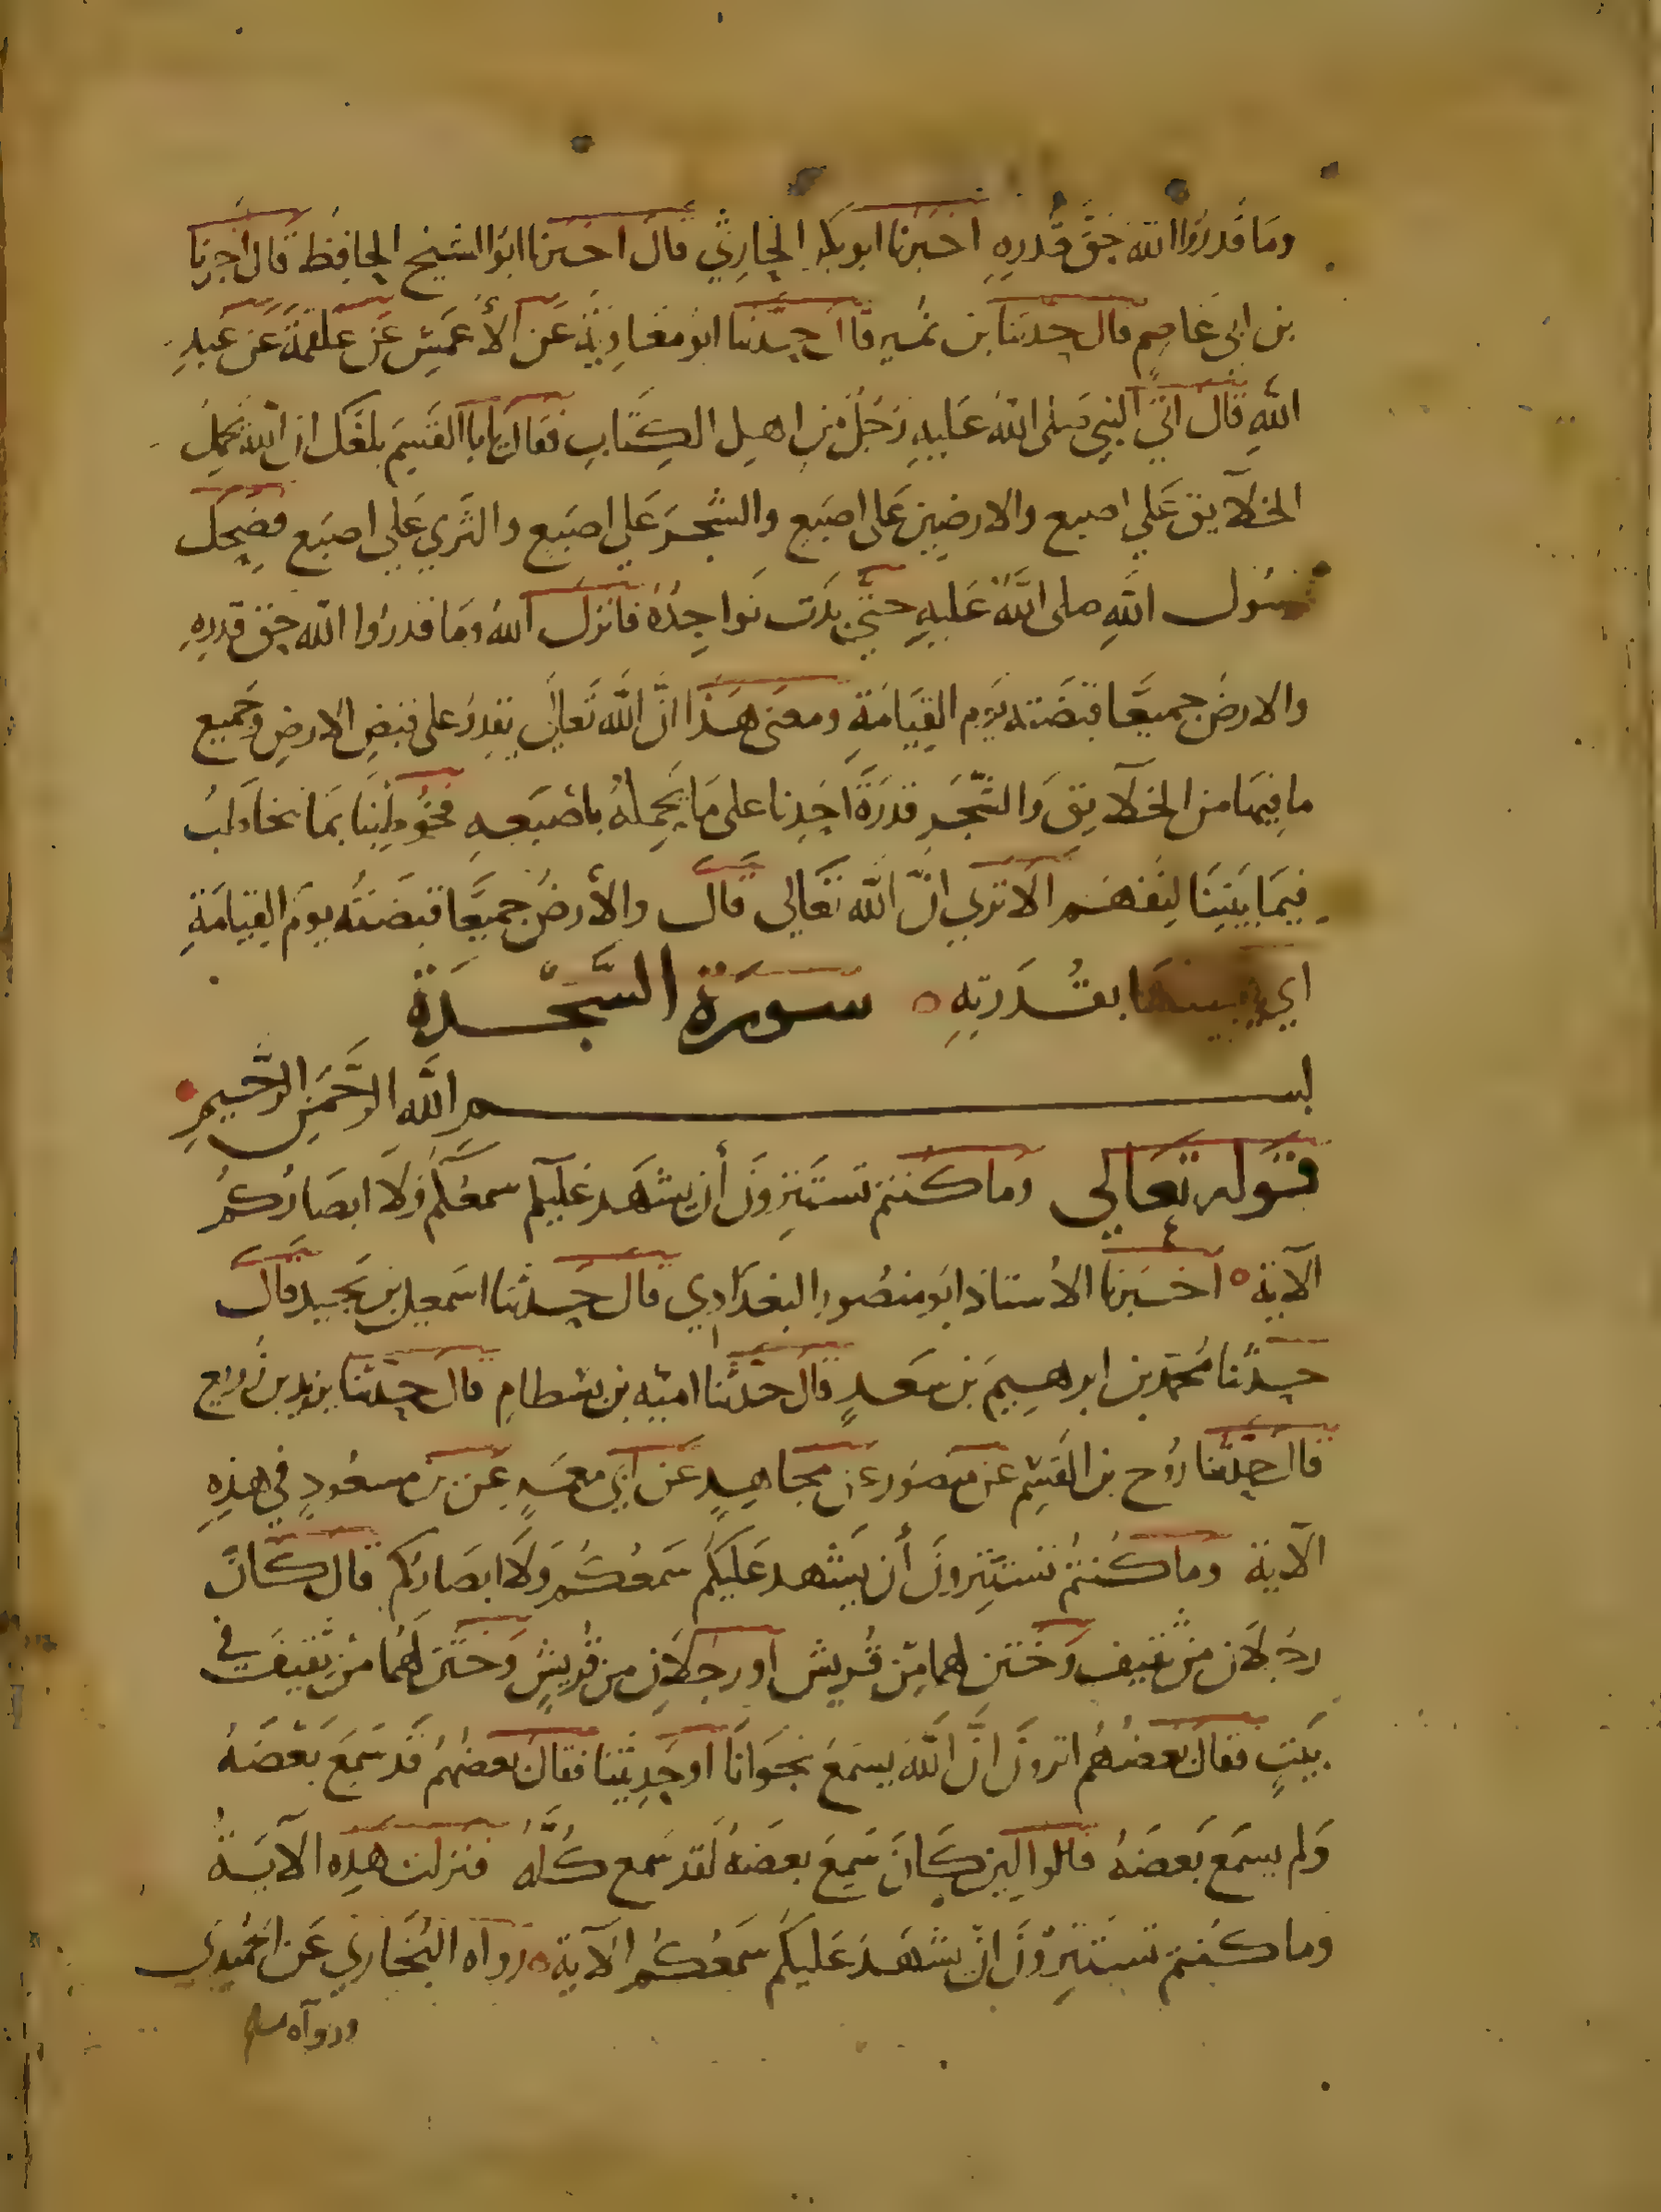 وما قدروا الله حق قدره اخبرنا ابو بكر الحارثي قال اخبرنا ابو الشيخ الحافظ قال اخبرنا
بن ابي عاصم قال حدثنا بن نمير قال حدثنا ابو معاوية عن الأعمش عن علقمة عن عبد
الله قال اتي النبي صلى الله عليه رجل من اهل الكتاب فقال يابا القسم بلغك ان الله يحمل
الخلايق علي اصبع والارضين على اصبع والشجر علي اصبع والثري علي اصبع فضحك
رسول الله صلى الله عليه حتي بدت نواجذه فانزل الله وما قدروا الله حق قدره
والارض جميعا قبضته يوم القيامة ومعنى هذا ان الله تعالى يقدر على قبض الارض وجميع
ما فيها من الخلايق والشجر قدرة احدنا على ما يحمله باصبعه فخوطبنا بما نتخاطب
فيما بيننا لنفهم الا تري ان الله تعالي قال والأرض جميعا قبضته يوم القيامة
اي بقدرته ه سورة السجدة
بسم الله الرحمن الرحيم
قوله تعالي وما كنتم تستترون أن يشهد عليكم سمعكم ولا ابصاركم
الآية ه اخبرنا الاستاذ ابو منصور البغدادي قال حدثنا اسمعيل بن نجيد قال
حدثنا محمد بن ابرهيم بن سعد قال حدثنا امية بن بسطام قال حدثنا يزيد بن زريع
قال حدثنا روح بن القسم عن منصور عن مجاهد عن ابي معمر عن بن مسعود في هذه
الآية وما كنتم تستترون أن يشهد عليكم سمعكم ولا ابصاركم قال كان
رجلان من ثقيف وختن لهما من قريش او رجلان من قريش وختن لهما من ثقيف في
بيت فقال بعضهم اترون ان الله يسمع نجوانا او حديثنا فقال بعضهم قد سمع بعضه
ولم يسمع بعضه قالوا لين كان سمع بعضه لقد سمع كله فنزلت هذه الآية
وما كنتم تستترون ان يشهد عليكم سمعكم الآية ه رواه البخاري عن الحميدي
ورواه مسلم